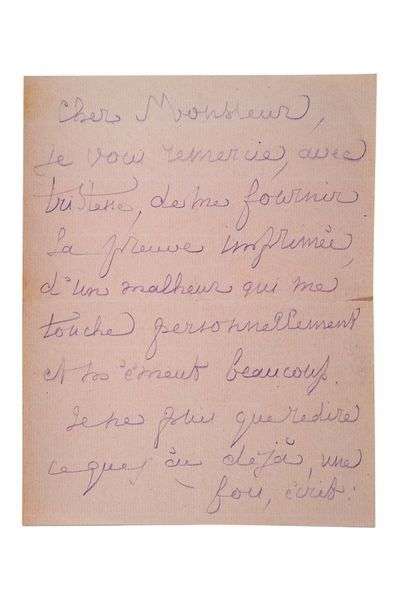 Cher Monsieur,
je vous remercie, avec
tristesse, de me fournir
la preuve imprimée,
d'un malheur qui me
touche personnellement
et m'émeut beaucoup.
Je ne puis que redire
ce que j'ai déjà, une
fois, écrit: